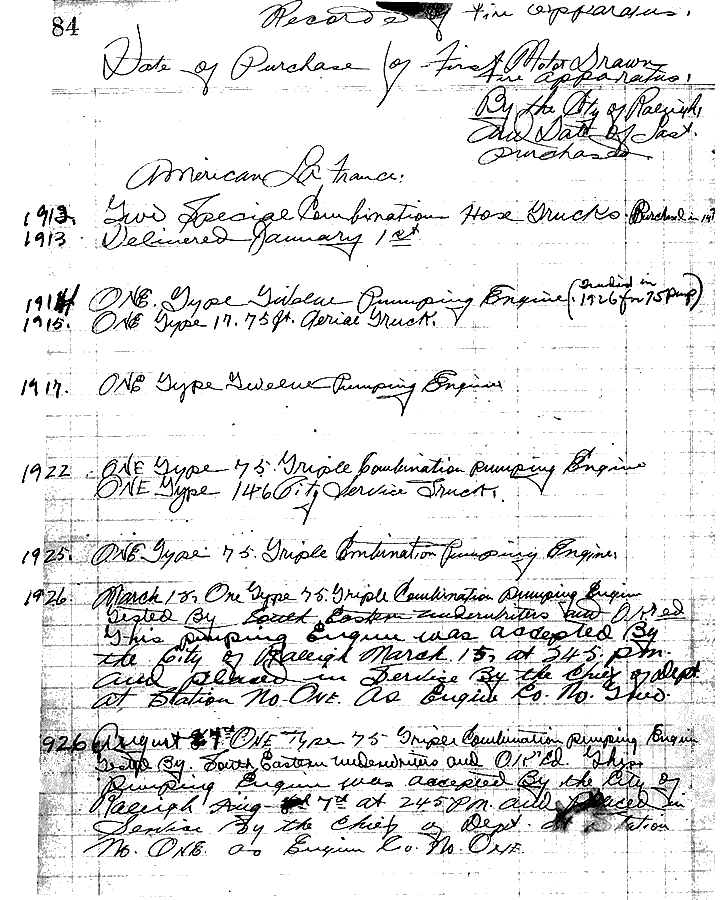 84
Records of Fire Apparatus.
Date of Purchase of First Motor Drawn
Fire Apparatus.
By the City of Raleigh,
and Date of Last
Purchased
American La France.
1912. Two Special Combination Hose Trucks. Purchased in
1913 Delivered January 1st
1914 ONE. Type Twelve Pumping Engine (Traded in
1926 for 75 pump)
1915. ONE Type 17. 75 ft. Aerial Truck.
1917. ONE Type Twelve Pumping Engine
1922. ONE Type 75. Triple Combination pumping Engine
ONE Type 146 City Service Truck.
1925. ONE Type 75. Triple Combination Pumping Engine.
1926 March 15, One Type 75 Triple Combination pumping Engine
Tested By South Eastern underwriters and O.K'ed
This pumping Engine was accepted By
the City of Raleigh March 15, at 245 p.m.
and placed in Service By the Chief of Dept.
at Station No. ONE. As Engine Co. No. Two.
926 August 7th ONE Type 75 Triple Combination pumping Engine
Tested By. South Eastern underwriters and O.K'Ed. This
Pumping Engine was accepted By the City of
Raleigh Aug- 7th at 245 P.M. and placed in
Service By the Chief of Dept. at Station
No. ONE. as Engine Co. No. ONE.